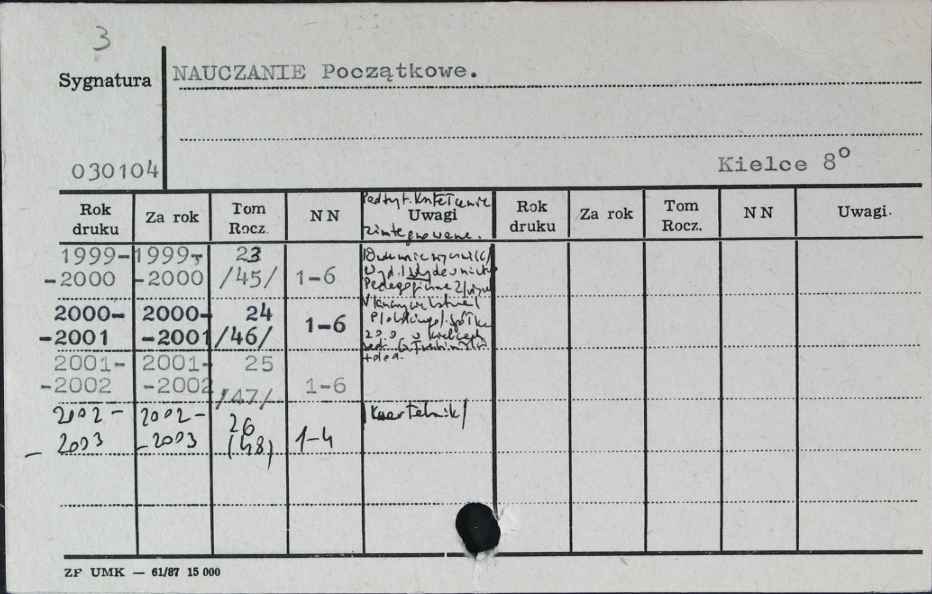 3
Sygnatura NAUCZANIE Początkowe.
030104 Kielce 8°
Rok druku Za rok Tom Rocz. NN Podtyt. Kształcenie Uwagi zintegrowane. Rok druku Za rok Tom Rocz. NN Uwagi.
1999- 1999- 23
-2000 -2000 /45/ 1-6
Wyd.
Pedagogiczne
2000- 2000- 24
-2001 -2001 /46/ 1-6
spółka
z o.o. w Kielcach
red.
2001- 2001- 25
-2002 -2002 /47/ 1-6
2002- 2002- 26 /kwartalnik/
-2003 -2003 (48) 1-4
ZP UMK — 61/87 15 000